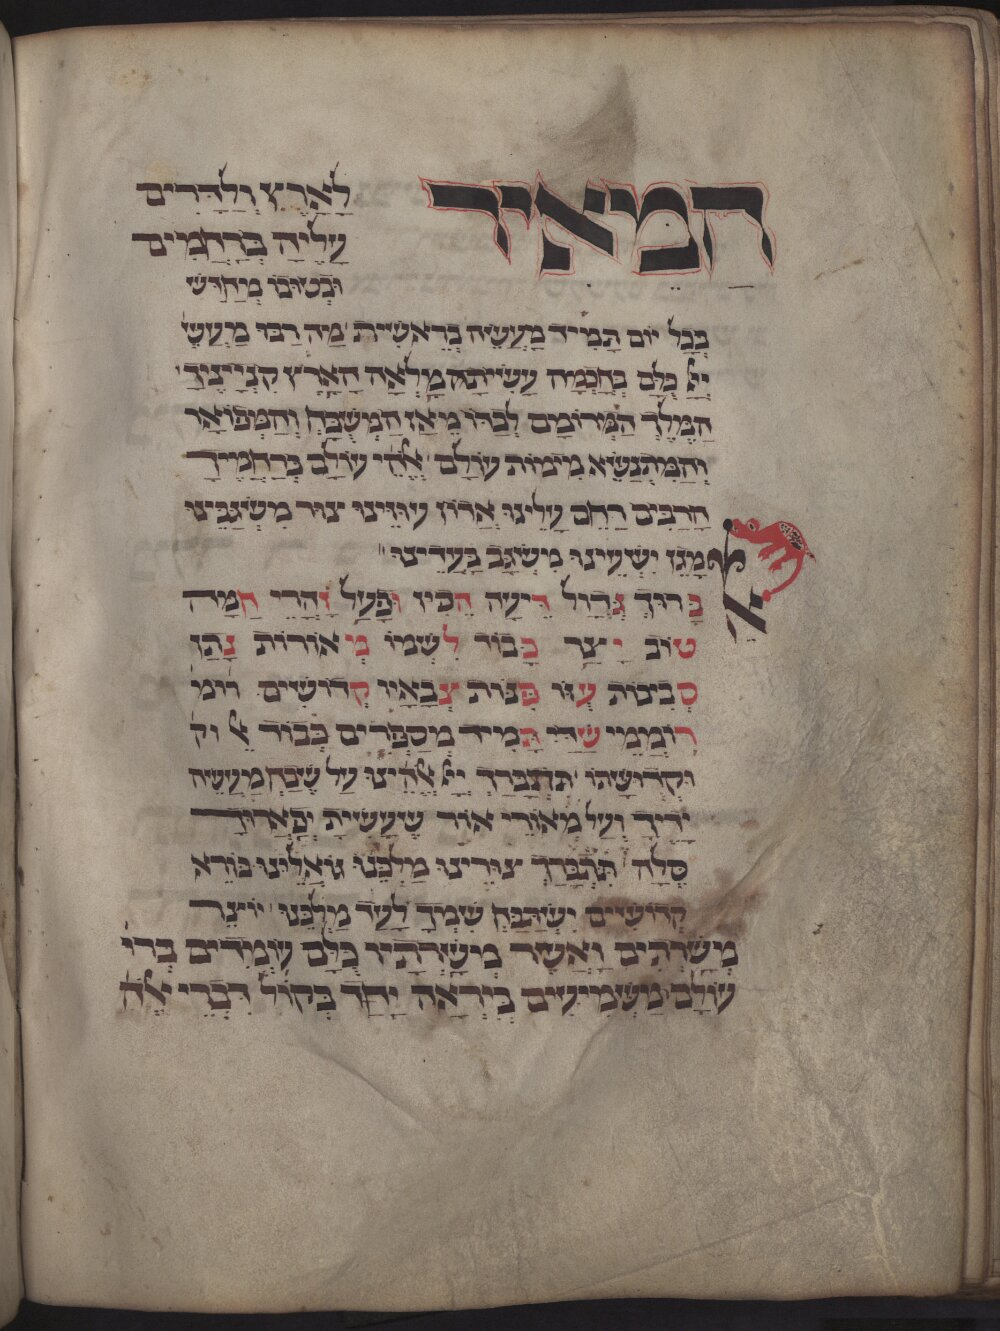 המאיר
לָאָרֶץ וְלַדָּרִים
עָלֶיהָ בְּרַחֲמִים
וּבְטוּבוֹ מְחַדֵּשׁ
בְּכָל יוֹם תָּמִיד מַעֲשֵׂה בְרֵאשִׁית מַה רַבּוּ מַעֲשֶׂ
יְיָ כֻּלָּם בְּחָכְמָה עָשִׂיתָה מָלְאָה הָאָרֶץ קִנְיָינֶיךָ
הַמֶּלֶךְ הַמְּרוֹמָם לְבַדּוֹ מֵאָז הַמְשֻׁבָּח וְהַמְּפוֹאָר
וְהַמִּתְנַשֵּׂא מִימוֹת עוֹלָם אֱלֹהֵי עוֹלָם בְּרַחֲמֶיךָ
הָרַבִּים רַחֵם עָלֵינוּ אֲדוֹן עוּזֵּינוּ צוּר מִשְׂגַּבֵּינוּ
מָגֵן יִשְׁעֵינוּ מִשְׂגָּב בַּעֲדֵינוּ
אל
בָּרוּךְ גְּדוֹל דֵּיעָה הֵכִין וּפָעַל זָהֳרֵי חַמָּה
טוֹב יָצַר כָּבוֹד לִשְׁמוֹ מְאוֹרוֹת נָתַן
סְבִיבוֹת עֻזּוֹ פִּנּוֹת צְבָאָיו קְדוֹשִׁים רוֹמ
רוֹמְמֵי שַׁדַּי תָּמִיד מְסַפְּרִים כְּבוֹד אֵל וק
וּקְדוּשָׁתוֹ תִּתְבָּרַךְ יְיָ אֱלֹהֵינוּ עַל שֶׁבַח מַעֲשֵׂה
יָדֶיךָ וְעַל מְאוֹרֵי אוֹר שֶׁעָשִׂיתָ יְפָאֲרוּךָ
סֶלָה תִּתְבָּרַךְ צוּרֵינוּ מַלְכֵּנוּ גּוֹאֲלֵינוּ בּוֹרֵא
קְדוֹשִׁים יִשְׁתַּבַּח שִׁמְךָ לָעַד מַלְכֵּנוּ יוֹצֵר
מְשָׁרְתִים וַאֲשֶׁר מְשָׁרְתָיו כֻּלָּם עוֹמְדִים בְּרוּ
עוֹלָם מַשְׁמִיעִים בְּיִרְאָה יַחַד בְּקוֹל דִּבְרֵי אֱלֹה